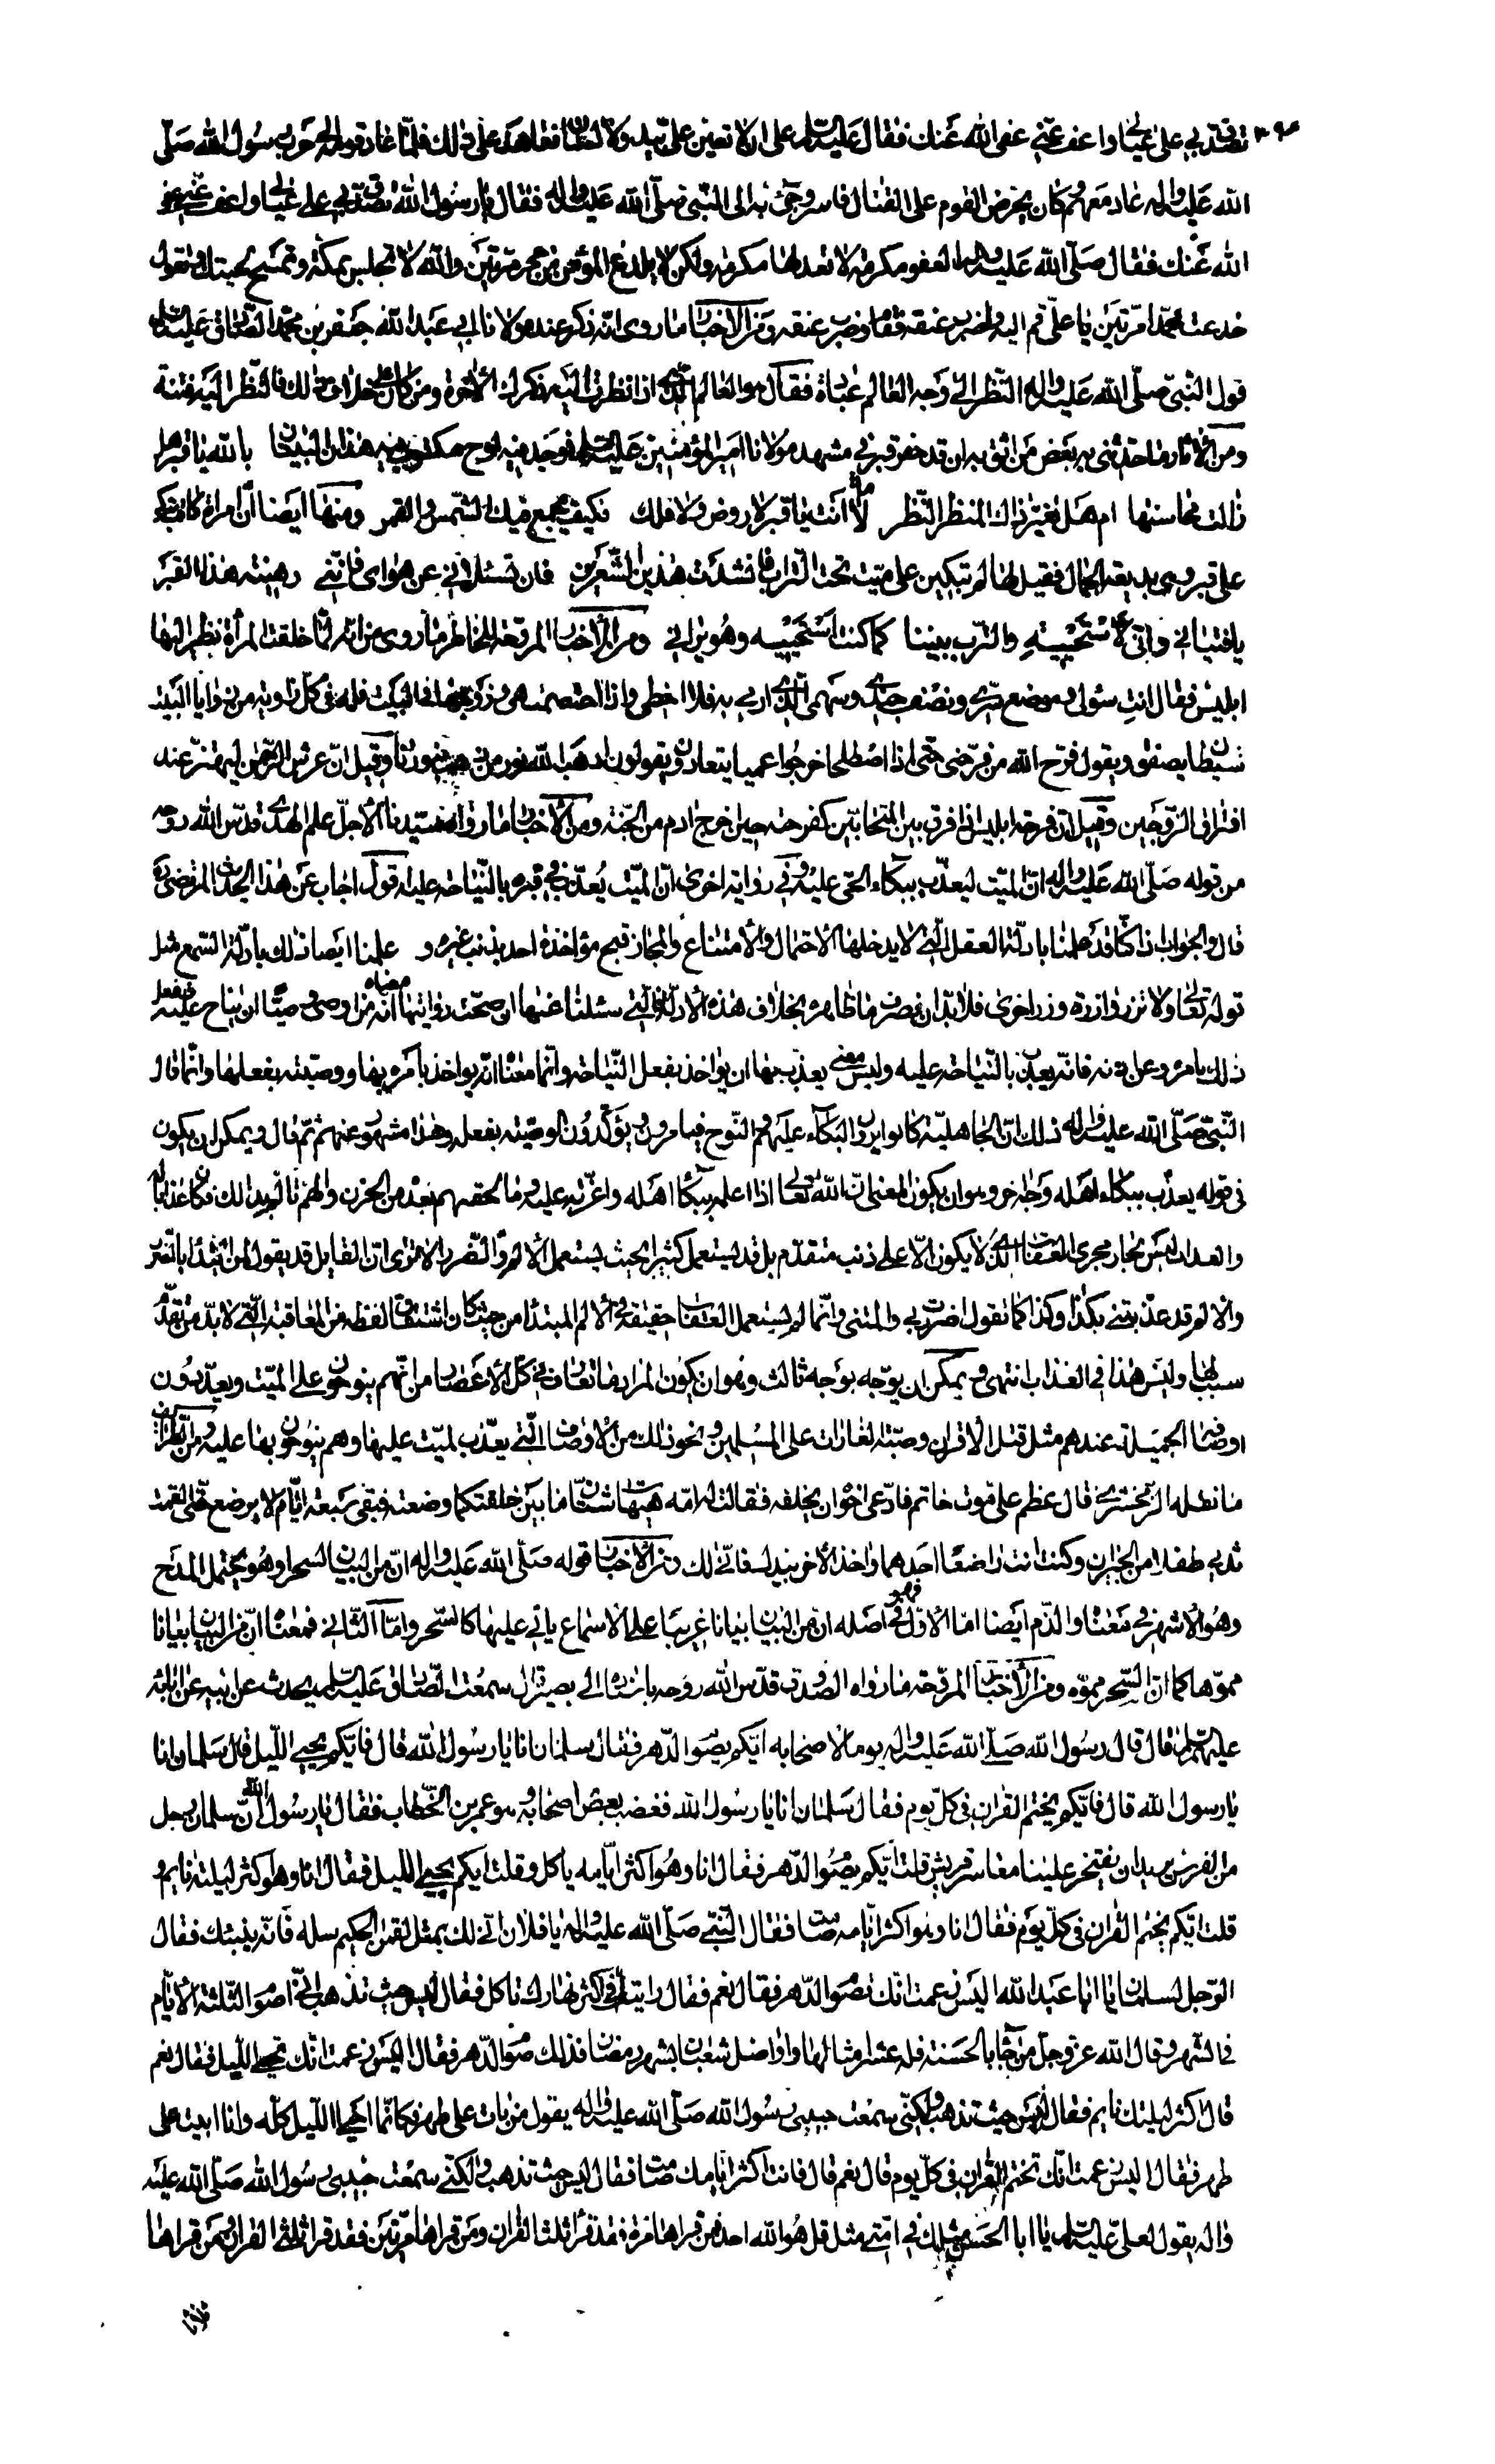 تصدق بي على عيالي واعف عني عفى الله عنك فقال عليه السلام على ان لا تعين علي بيد ولا لسان فعاهده على ذلك فلما عاد قومه الى حرب رسول الله صلى
الله عليه واله عاد معهم وكان يحرض القوم على القتال فاسر وجئ به الى النبي صلى الله عليه واله فقال يا رسول الله تصدق بي على عيالي واعف عني عفى
الله عنك فقال صلى الله عليه واله العفو مكرمة لا تعدلها مكرمة ولكن لا يلدغ المؤمن من جحر مرتين والله لا تجلس بمكة وتمسح لحيتك وتقول
خدعت محمدا مرتين يا علي قم اليه واضرب عنقه فقام وضرب عنقه ومن الاخبار ما روى انه ذكر عند مولانا ابي عبد الله جعفر بن محمد الصادق عليه السلام
قول النبي صلى الله عليه واله النظر الى وجه العالم عبادة فقال هو العالم الذي اذا نظرت اليه ذكرك الاخرة ومن كان على خلاف ذلك فالنظر اليه فتنة
ومن الاثار ما حدثني به بعض من اثق به ان قد حفر قبر في مشهد مولانا امير المؤمنين عليه السلام فوجد فيه لوح مكتوب فيه هذان البيتان بالله يا قبر هل
زالت محاسنها ام هل تغير ذاك المنظر النظر ما انت يا قبر لا روض ولا فلك فكيف يجمع فيك الشمس والقمر ومنها ايضا ان امراة كانت تبكي
على قبر وهي بديعة الجمال فقيل لها لم تبكين على ميت تحت التراب فانشدت هذين الشعرين فان تسئلاني عن هواى فانني رهينة هذا القبر
يا فتياني واني لاستحييه والترب بيننا كما كنت استحييه وهو يراني ومن الاخبار المروحة للخاطر ما روى من انه لما خلقت المرأة نظر اليها
ابليس فقال انت سؤلي وموضع سري ونصف جندي وسهمي الذي ارمي به فلا اخطى واذا اختصمت هي وزوجها في البيت قام في كل زاوية من زوايا البيت
شيطان يصفق ويقول فرح الله من فرحني حتى اذا اصطلحا خرجوا عميا يتعادون ويقولون اذهب الله نور من ذهب بنورنا وقيل ان عرش الرحمن ليهتز عند
افتراق الزوجين وقيل ان فرحة ابليس اذا فرق بين المتحابين كفرحته حين اخرج ادم من الجنة ومن الاخبار ما رواه سيدنا الاجل علم الهدى قدس الله روحه
من قوله صلى الله عليه واله ان الميت ليعذب ببكاء الحي عليه وفي رواية اخرى ان الميت يعذب في قبره بالنياحة عليه قول اجاب عن هذا الحديث المرتضى ره
قال والجواب انا كنا قد علمنا بادلة العقل التي لا يدخلها الاحتمال والامتناع والمجاز قبح مؤاخذة احد بذنب غيره و علمنا ايضا ذلك بادلة السمع مثل
قوله تعالى ولا تزر وازرة وزر اخرى فلا بد ان نصرف ما ظاهره بخلاف هذه الادلة والتي سئلنا عنها ان صحت روايتها معناه انه من اوصى موصيا ان يناح عليه ففعل
ذلك بامره وعن اذنه فانه يعذب بالنياحة عليه وليس معنى يعذب بها ان يؤاخذ بفعل النياحة وانما معناه انه يؤاخذ بامره بها ووصيته بفعلها وانما قال
النبي صلى الله عليه واله ذلك ان الجاهلية كانوا يرون البكاء عليهم والنوح فيامرون ويؤكدون الوصية بفعله وهذا مشهور عنهم ثم قال ويمكن ان يكون
في قوله يعذب ببكاء اهله وجه اخر وهو ان يكون المعنى ان الله تعالى اذا اعلمه ببكاء اهله واعزته عليه وما لحقهم بعده من الحزن والهم تالم بذلك فكان عذابا له
والعذاب ليس بجار مجرى العقاب الذي لا يكون الا على ذنب متقدم بل قد يستعمل كثيرا بحيث يستعمل الالم والضرر الا ترى ان القايل قد يقول لمن ابتداه بالضرر
والالم قد عذبتني بكذا وكذا كما تقول اضررت بي والمتني وانما لم يستعمل العقاب حقيقة في الالم المبتدا من حيث كان اشتقاق لفظه من المعاقبة التي لا بد من تقدم
سببها وليس هذا في العذاب انتهى ويمكن ان يوجه بوجه ثالث وهو ان يكون المراد ما تعارف في كل الاعصار من انهم ينوحون على الميت ويعددون
اوصافه الجميلة عندهم مثل قتل الاقران وصبه الغارات على المسلمين ونحو ذلك من الاوصاف التي يعذب الميت عليها وهم ينوحون بها عليه ومن الظرائف
ما نقله الزمخشري قال عظم على موت حاتم فادعى اخوه ان يخلفه فقالت له امه هيهات شتان ما بين خلقتكما وضعته فبقى سبعة ايام لا يرضع حتى القمت
ثديي طفلا من الجيران وكنت انت راضعا احدهما واخذ الاخر بيدك فانى لك ومن الاخبار قوله صلى الله عليه واله ان من البيان لسحرا وهو يحتمل المدح
وهو الاشهر في معناه والذم ايضا اما الاول فهو في اصله ان من البيان بيانا غريبا على الاسماع ياتي عليها كالسحر واما الثاني فمعناه ان من البيان بيانا
مموها كما ان السحر مموه ومن الاخبار المروحة ما رواه الصدوق قدس الله روحه باسناده الى بصير قال سمعت الصادق عليه السلام يحدث عن ابيه عن ابائه
عليهم السلام قال قال رسول الله صلى الله عليه واله يوما لاصحابه ايكم يصوم الدهر فقال سلمان انا يا رسول الله قال فايكم يحيي الليل قال سلمان انا
يا رسول الله قال فايكم يختم القران في كل يوم فقال سلمان انا يا رسول الله فغضب بعض اصحابه وهو عمر بن الخطاب فقال يا رسول الله ان سلمان رجل
من الفرس يريد ان يفتخر علينا معاشر قريش قلت ايكم يصوم الدهر فقال انا وهو اكثر ايامه ياكل وقلت ايكم يحيي الليل فقال انا وهو اكثر ليلته نايم و
قلت ايكم يختم القران في كل يوم فقال انا وهو اكثر ايامه صامت فقال النبي صلى الله عليه واله يا فلان انى لك بمثل لقمن الحكيم سله فانه ينبئك فقال
الرجل لسلمان يا ابا عبد الله اليس زعمت انك تصوم الدهر فقال نعم فقال رايتك في اكثر نهارك تاكل فقال ليس حيث تذهب اني اصوم الثلثة الايام
في الشهر وقال الله عز وجل من جاء بالحسنة فله عشر امثالها واواصل شعبان بشهر رمضان فذلك صوم الدهر فقال اليس زعمت انك تحيي الليل فقال نعم
قال اكثر ليلتك نايم فقال ليس حيث تذهب ولكني سمعت حبيبي رسول الله صلى الله عليه واله يقول من بات على طهر فكانما احيى الليل كله وانا ابيت على
طهر فقال اليس زعمت انك تختم القران في كل يوم قال نعم قال فانت اكثر ايامك صامت فقال ليس حيث تذهب ولكني سمعت حبيبي رسول الله صلى الله عليه
واله يقول لعلي عليه السلام يا ابا الحسن مثلك في امتي مثل قل هو الله احد فمن قراها مرة فقد قرا ثلث القران ومن قراها مرتين فقد قرا ثلثي القران ومن قراها